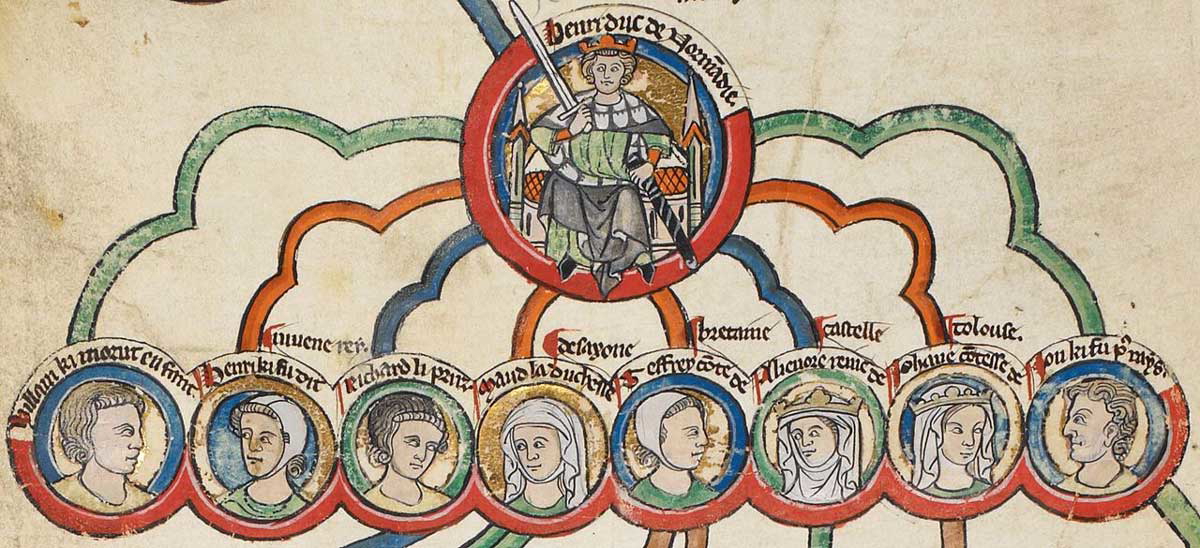 Henri duc de Normādie.
Willam ki morut en
Henri ki fu dit
iuvene rey.
Richard li
Maud la duchesse
de saxone
Geffrey cōte de
bretaine
Alienore reine de
castelle
Iohane cōtesse de
tolouse.
Ion ki fu